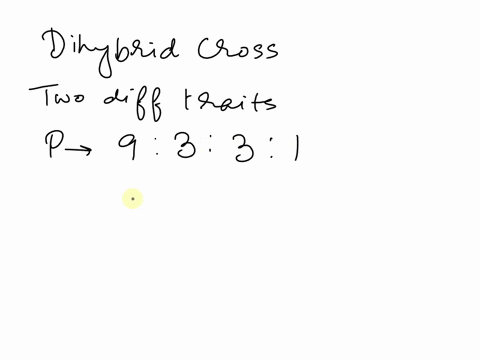 Dihybrid Cross
Two diff traits
P → 9 : 3 : 3 : 1